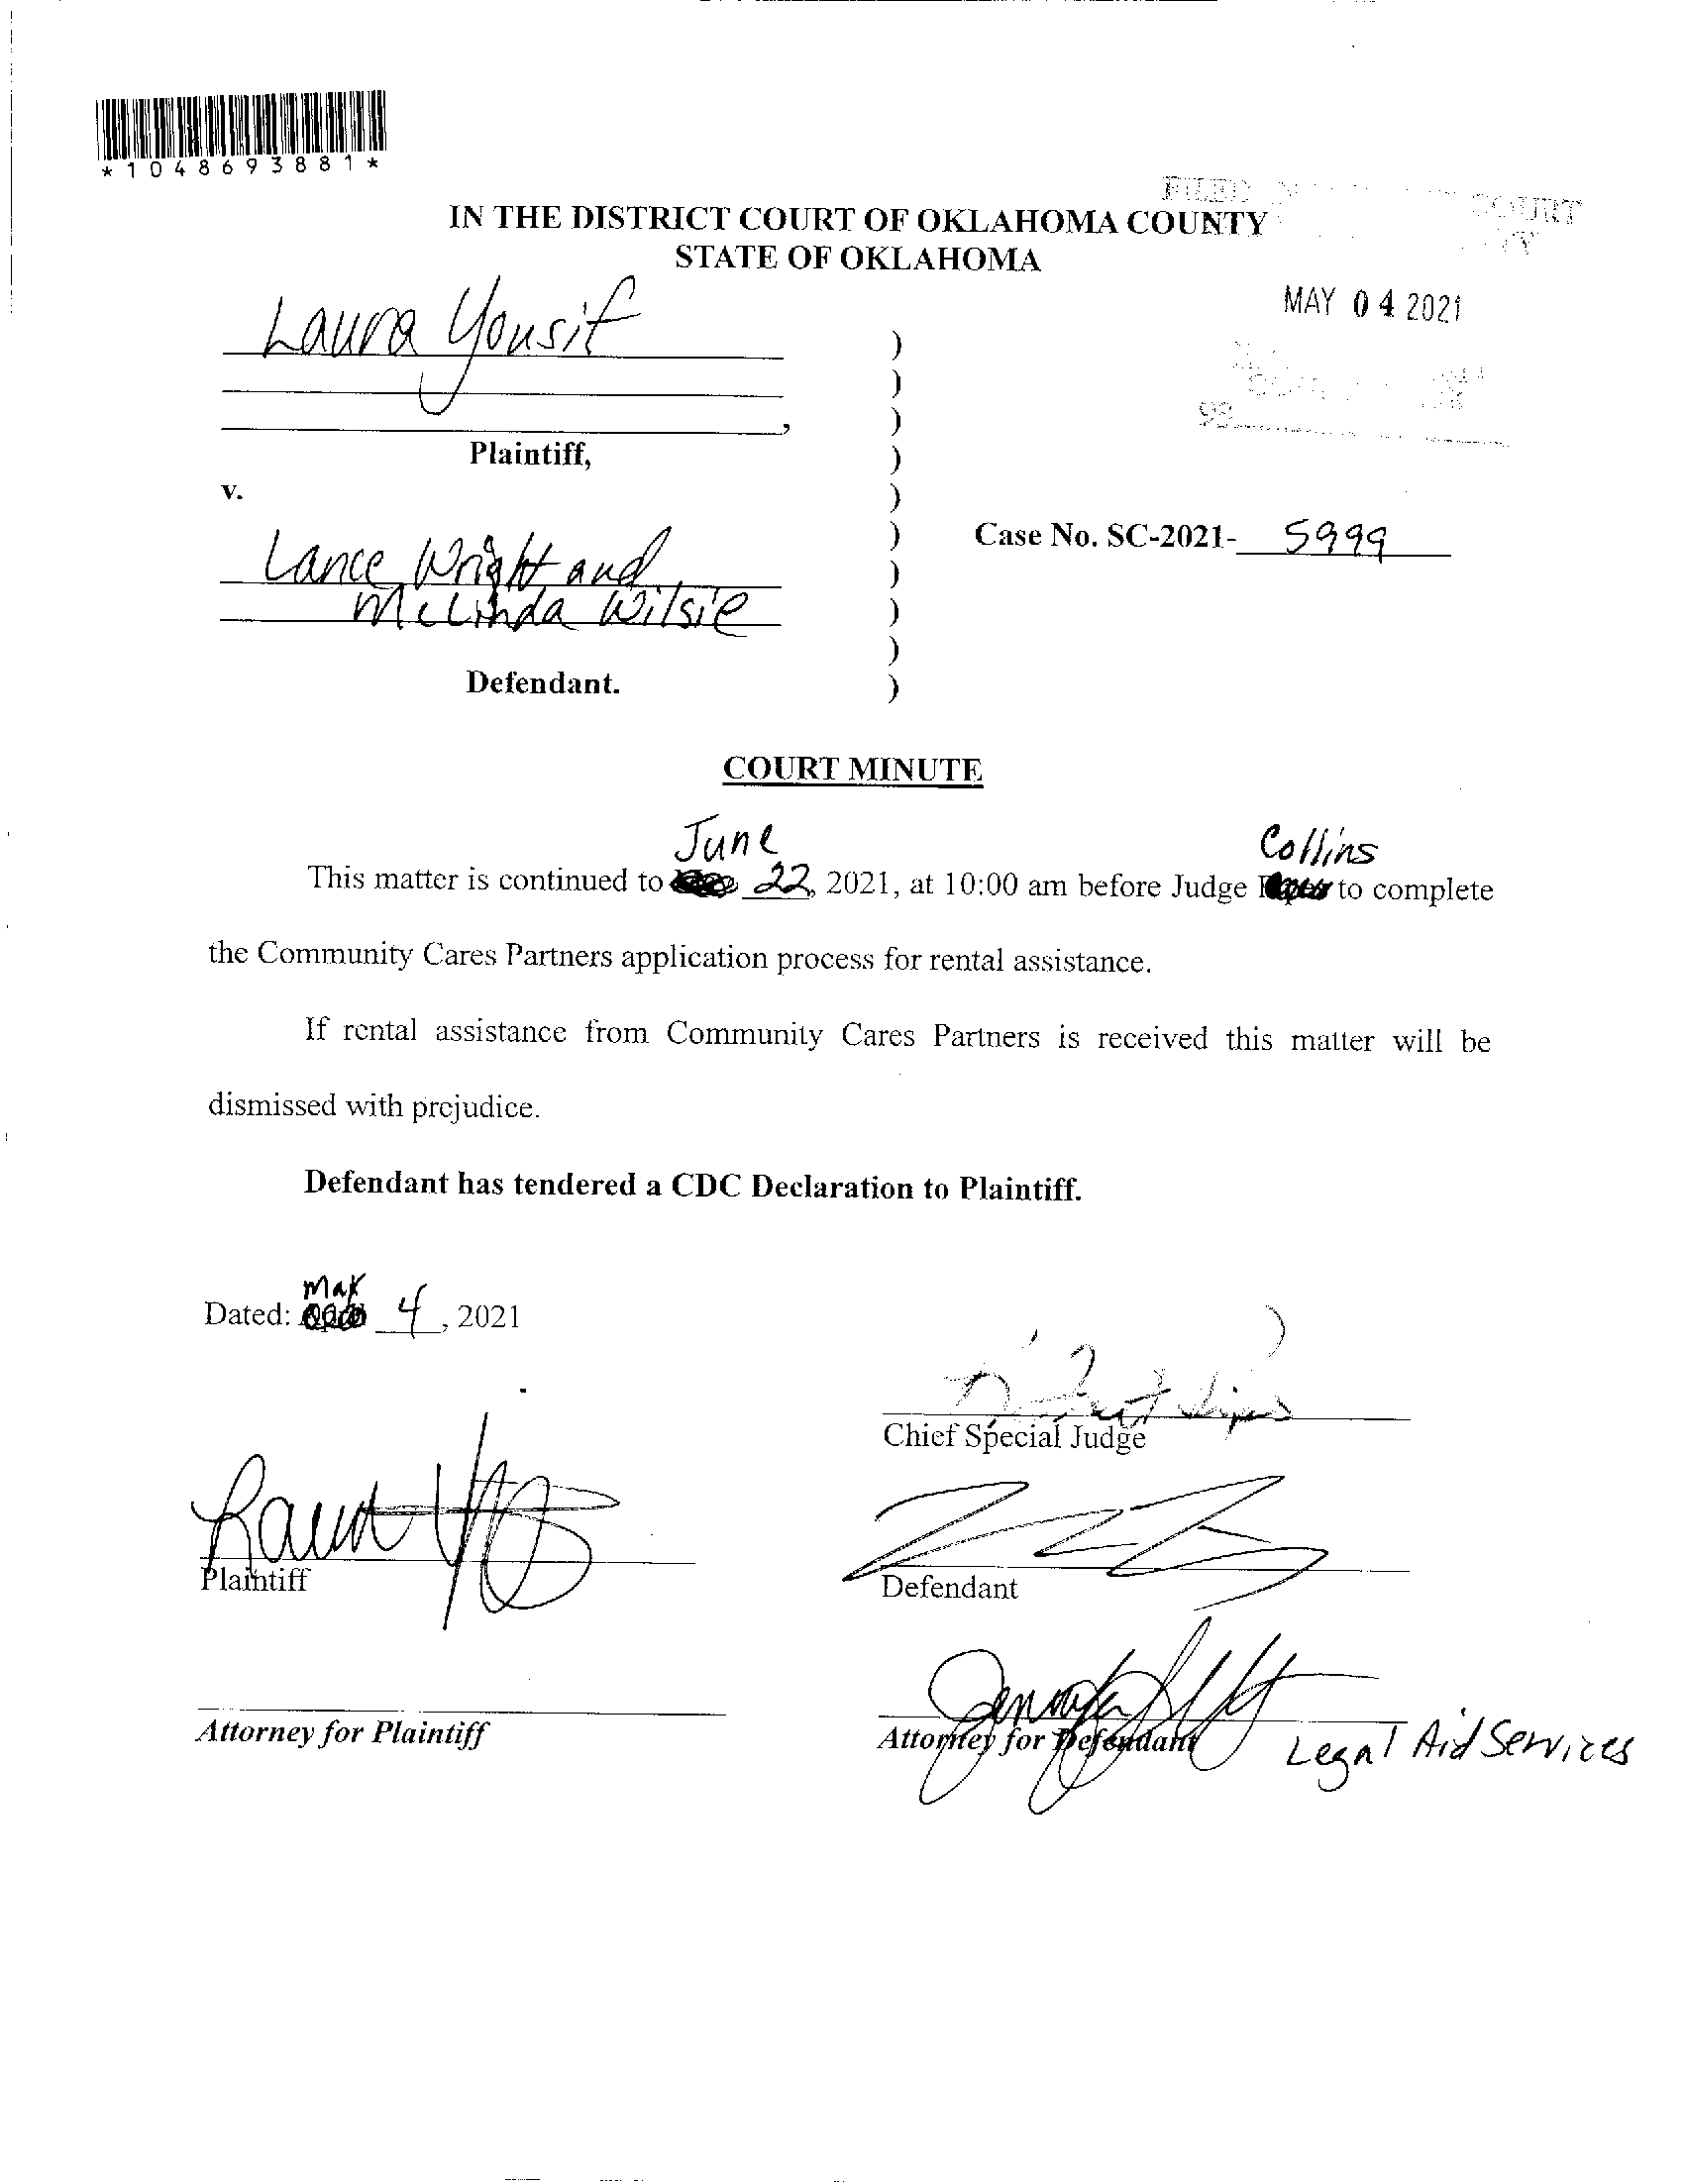 *1048693881*
FILED COURT
IN THE DISTRICT COURT OF OKLAHOMA COUNTY
STATE OF OKLAHOMA
MAY 04 2021
Laura Yousif
Plaintiff,
v.
Case No. SC-2021- 5999
Lance Wright and
Melinda Wilsie
Defendant.
COURT MINUTE
June Collins
This matter is continued to 22, 2021, at 10:00 am before Judge to complete
the Community Cares Partners application process for rental assistance.
If rental assistance from Community Cares Partners is received this matter will be
dismissed with prejudice.
Defendant has tendered a CDC Declaration to Plaintiff.
May
Dated: 4, 2021
Chief Special Judge
Plaintiff
Defendant
Attorney for Plaintiff
Attorney for Defendant
Legal Aid Services